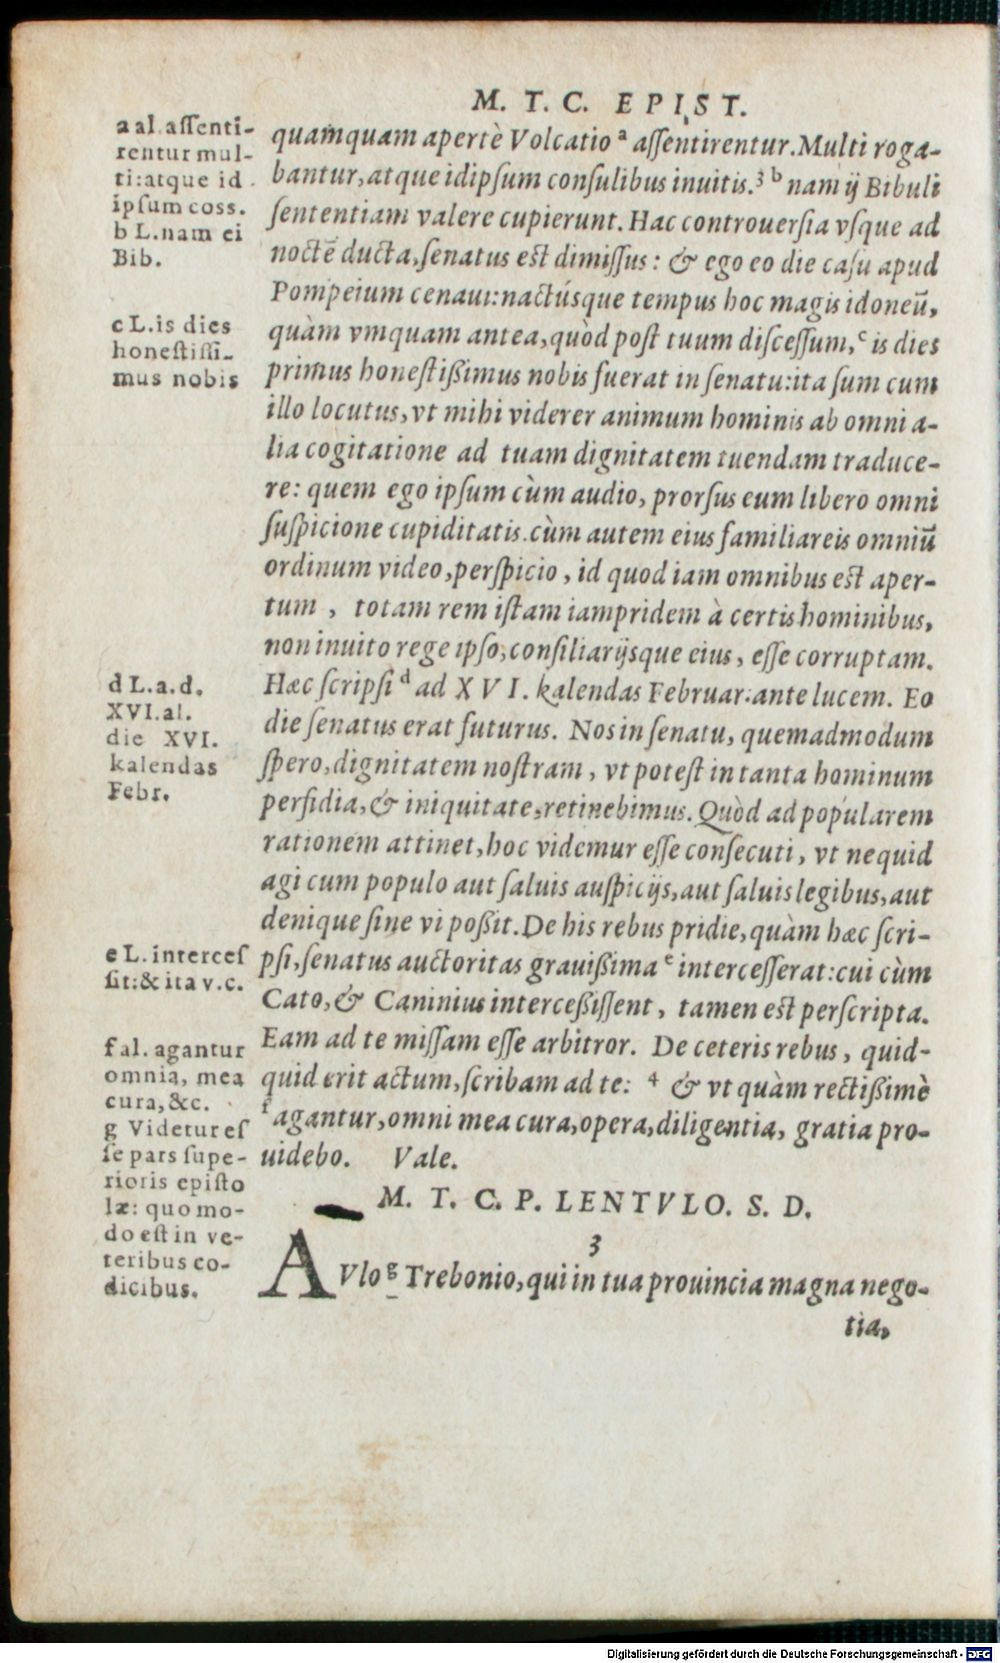 M. T. C. EPIST.
quamquam apertè Volcatio ᵃ assentirentur. Multi roga-
bantur, atque idipsum consulibus inuitis. ³ ᵇ nam ij Bibuli
sententiam valere cupierunt. Hac controuersia vsque ad
noctē ducta, senatus est dimissus: & ego eo die casu apud
Pompeium cenaui: nactúsque tempus hoc magis idoneū,
quàm vmquam antea, quòd post tuum discessum, ᶜ is dies
primus honestißimus nobis fuerat in senatu: ita sum cum
illo locutus, vt mihi viderer animum hominis ab omni a-
lia cogitatione ad tuam dignitatem tuendam traduce-
re: quem ego ipsum cùm audio, prorsus eum libero omni
suspicione cupiditatis. cùm autem eius familiareis omniū
ordinum video, perspicio, id quod iam omnibus est aper-
tum, totam rem istam iampridem à certis hominibus,
non inuito rege ipso, consiliarijsque eius, esse corruptam.
Hæc scripsi ᵈ ad XVI. kalendas Februar: ante lucem. Eo
die senatus erat futurus. Nos in senatu, quemadmodum
spero, dignitatem nostram, vt potest in tanta hominum
perfidia, & iniquitate, retinebimus. Quòd ad popularem
rationem attinet, hoc videmur esse consecuti, vt nequid
agi cum populo aut saluis auspicijs, aut saluis legibus, aut
denique sine vi poßit. De his rebus pridie, quàm hæc scri-
psi, senatus auctoritas grauißima ᵉ intercesserat: cui cùm
Cato, & Caninius interceßissent, tamen est perscripta.
Eam ad te missam esse arbitror. De ceteris rebus, quid-
quid erit actum, scribam ad te: ⁴ & vt quàm rectißimè
ᶠ agantur, omni mea cura, opera, diligentia, gratia pro-
uidebo. Vale.
M. T. C. P. LENTVLO. S. D.
3
AVlo ᵍ Trebonio, qui in tua prouincia magna nego-
tia,
a al. assenti-
rentur mul-
ti: atque id
ipsum coss.
b L. nam ei
Bib.
c L. is dies
honestissi-
mus nobis
d L. a. d.
XVI. al.
die XVI.
kalendas
Febr.
e L. interces
sit: & ita v. c.
f al. agantur
omnia, mea
cura, &c.
g Videtur es
se pars supe-
rioris episto
læ: quomo-
do est in ve-
teribus co-
dicibus.
Digitalisierung gefördert durch die Deutsche Forschungsgemeinschaft - DFG